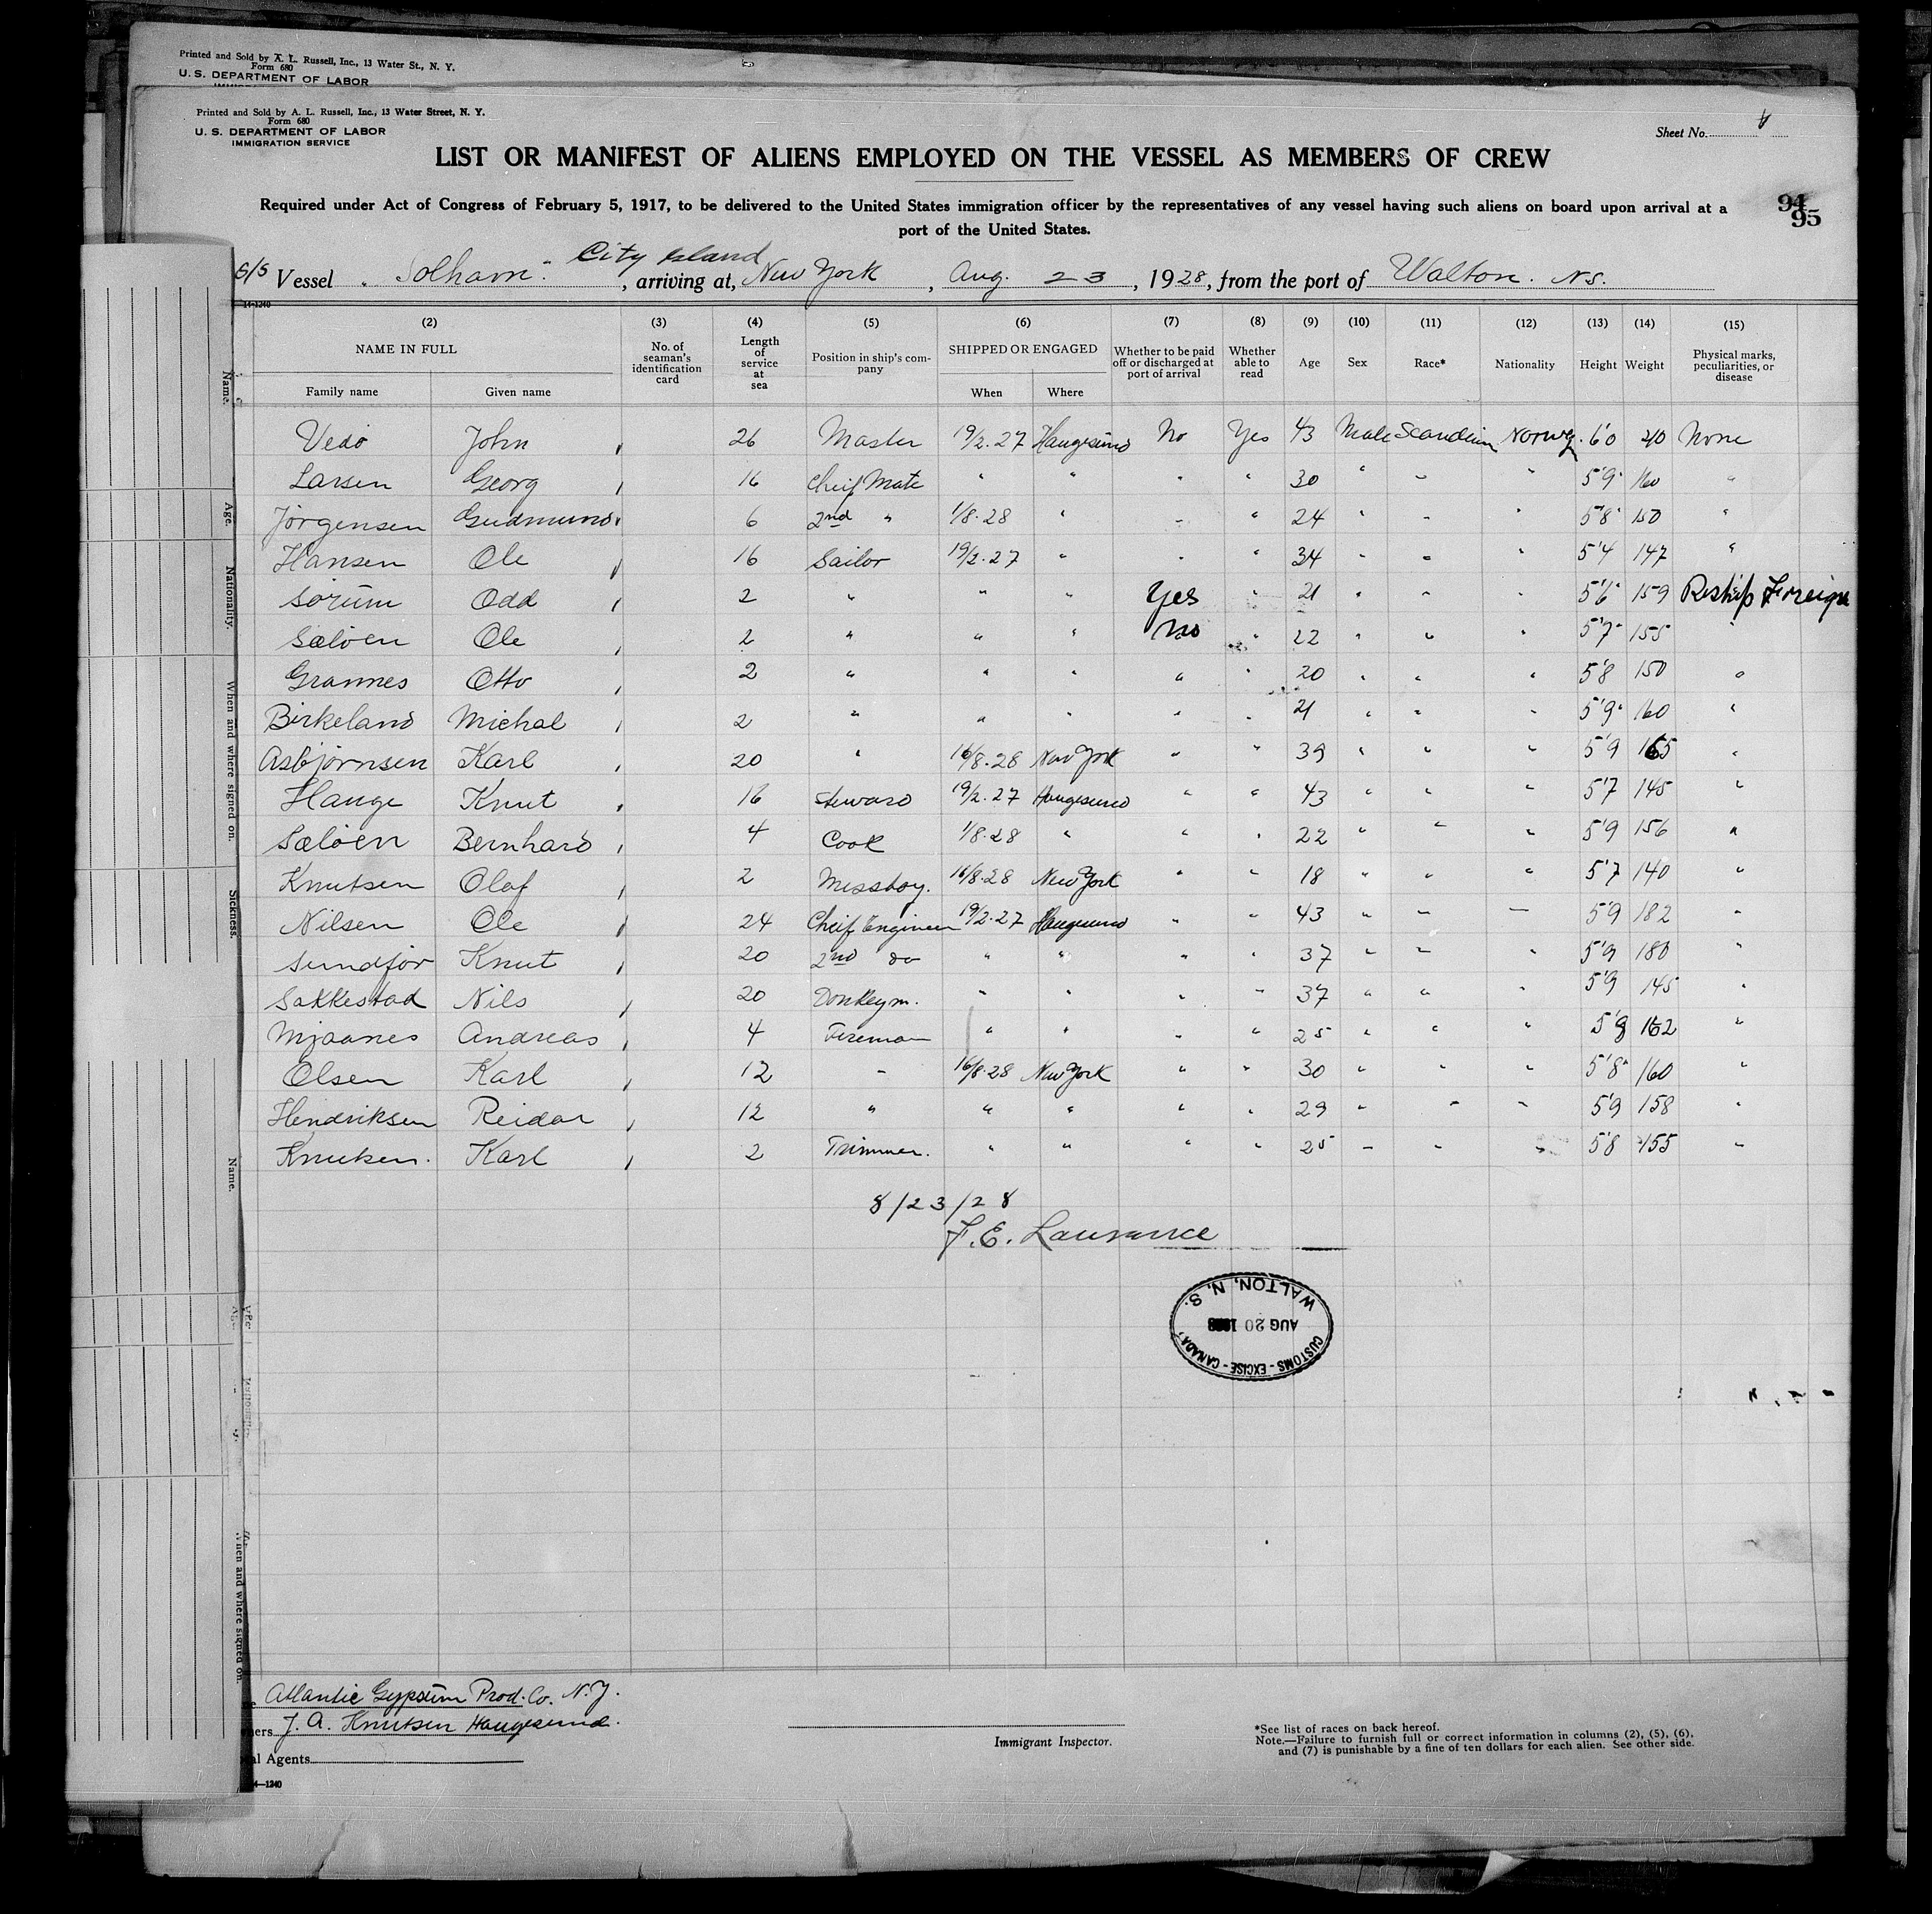 Printed and Sold by A. L. Russell, Inc., 13 Water St., N. Y.
Form 680
U. S. DEPARTMENT OF LABOR
Printed and Sold by A. L. Russell, Inc., 13 Water Street, N. Y.
Form 680
U. S. DEPARTMENT OF LABOR
IMMIGRATION SERVICE
Sheet No.
LIST OR MANIFEST OF ALIENS EMPLOYED ON THE VESSEL AS MEMBERS OF CREW
Required under Act of Congress of February 5, 1917, to be delivered to the United States immigration officer by the representatives of any vessel having such aliens on board upon arrival at a
port of the United States.
94
95
City Island
S/S Vessel "Solhavn", arriving at, New York, Aug. 23, 1928, from the port of Walton. N.S.
14-1240
(2) (3) (4) (5) (6) (7) (8) (9) (10) (11) (12) (13) (14) (15)
NAME IN FULL No. of seaman's identification card Length of service at sea Position in ship's company SHIPPED OR ENGAGED Whether to be paid off or discharged at port of arrival Whether able to read Age Sex Race* Nationality Height Weight Physical marks, peculiarities, or disease
Family name Given name When Where
Vedö John 26 Master 19/2.27 Haugesund No Yes 43 Male Scandinn Norweg. 6'0 210 None
Larsen Georg 16 Cheif Mate " " " " 30 " " 5'9" 160 "
Jörgensen Gudmund 6 2nd " 1/8.28 " " " 24 " " " 5'8" 150 "
Hansen Ole 16 Sailor 19/2.27 " " " 34 " " " 5'4 147 "
Sörum Odd 2 " " " Yes " 21 " " " 5'6" 159 Reship Foreign
Sælöen Ole 2 " " " No " 22 " " " 5'7" 155 "
Grannes Otto 2 " " " " " 20 " " " 5'8 150 "
Birkeland Michal 2 " " " " " 21 " " " 5'9" 160 "
Asbjörnsen Karl 20 " 16/8.28 New York " " 39 " " " 5'9 165 "
Hauge Knut 16 Steward 19/2.27 Haugesund " " 43 " " " 5'7 145 "
Sælöen Bernhard 4 Cook 1/8.28 " " " 22 " " " 5'9 156 "
Knutsen Olaf 2 Messboy. 16/8.28 New York " " 18 " " " 5'7 140 "
Nilsen Ole 24 Cheif Engineer 19/2.27 Haugesund " " 43 " " " 5'9 182 "
Sundför Knut 20 2nd do " " " " 37 " " " 5'9 180 "
Sakkestad Nils 20 Donkeym. " " " " 37 " " " 5'9 145 "
Mjaanes Andreas 4 Fireman " " " " 25 " " " 5'9 162 "
Olsen Karl 12 " 16/8.28 New York " " 30 " " " 5'8" 160 "
Hendriksen Reidar 12 " " " " " 29 " " " 5'9 158 "
Knutsen. Karl 2 Trimmer. " " " " 25 " " " 5'8 155 "
8/23/28
F. E. Lawrance
WALTON, N. S.
AUG 20 1928
CUSTOMS - EXCISE - CANADA
Name.
Age.
Nationality.
When and where signed on.
Sickness.
Name.
When and where signed on.
Atlantic Gypsum Prod. Co. N.Y.
J. A. Knutsen Haugesund.
Agents
4—1240
Immigrant Inspector.
*See list of races on back hereof.
Note.—Failure to furnish full or correct information in columns (2), (5), (6),
and (7) is punishable by a fine of ten dollars for each alien. See other side.